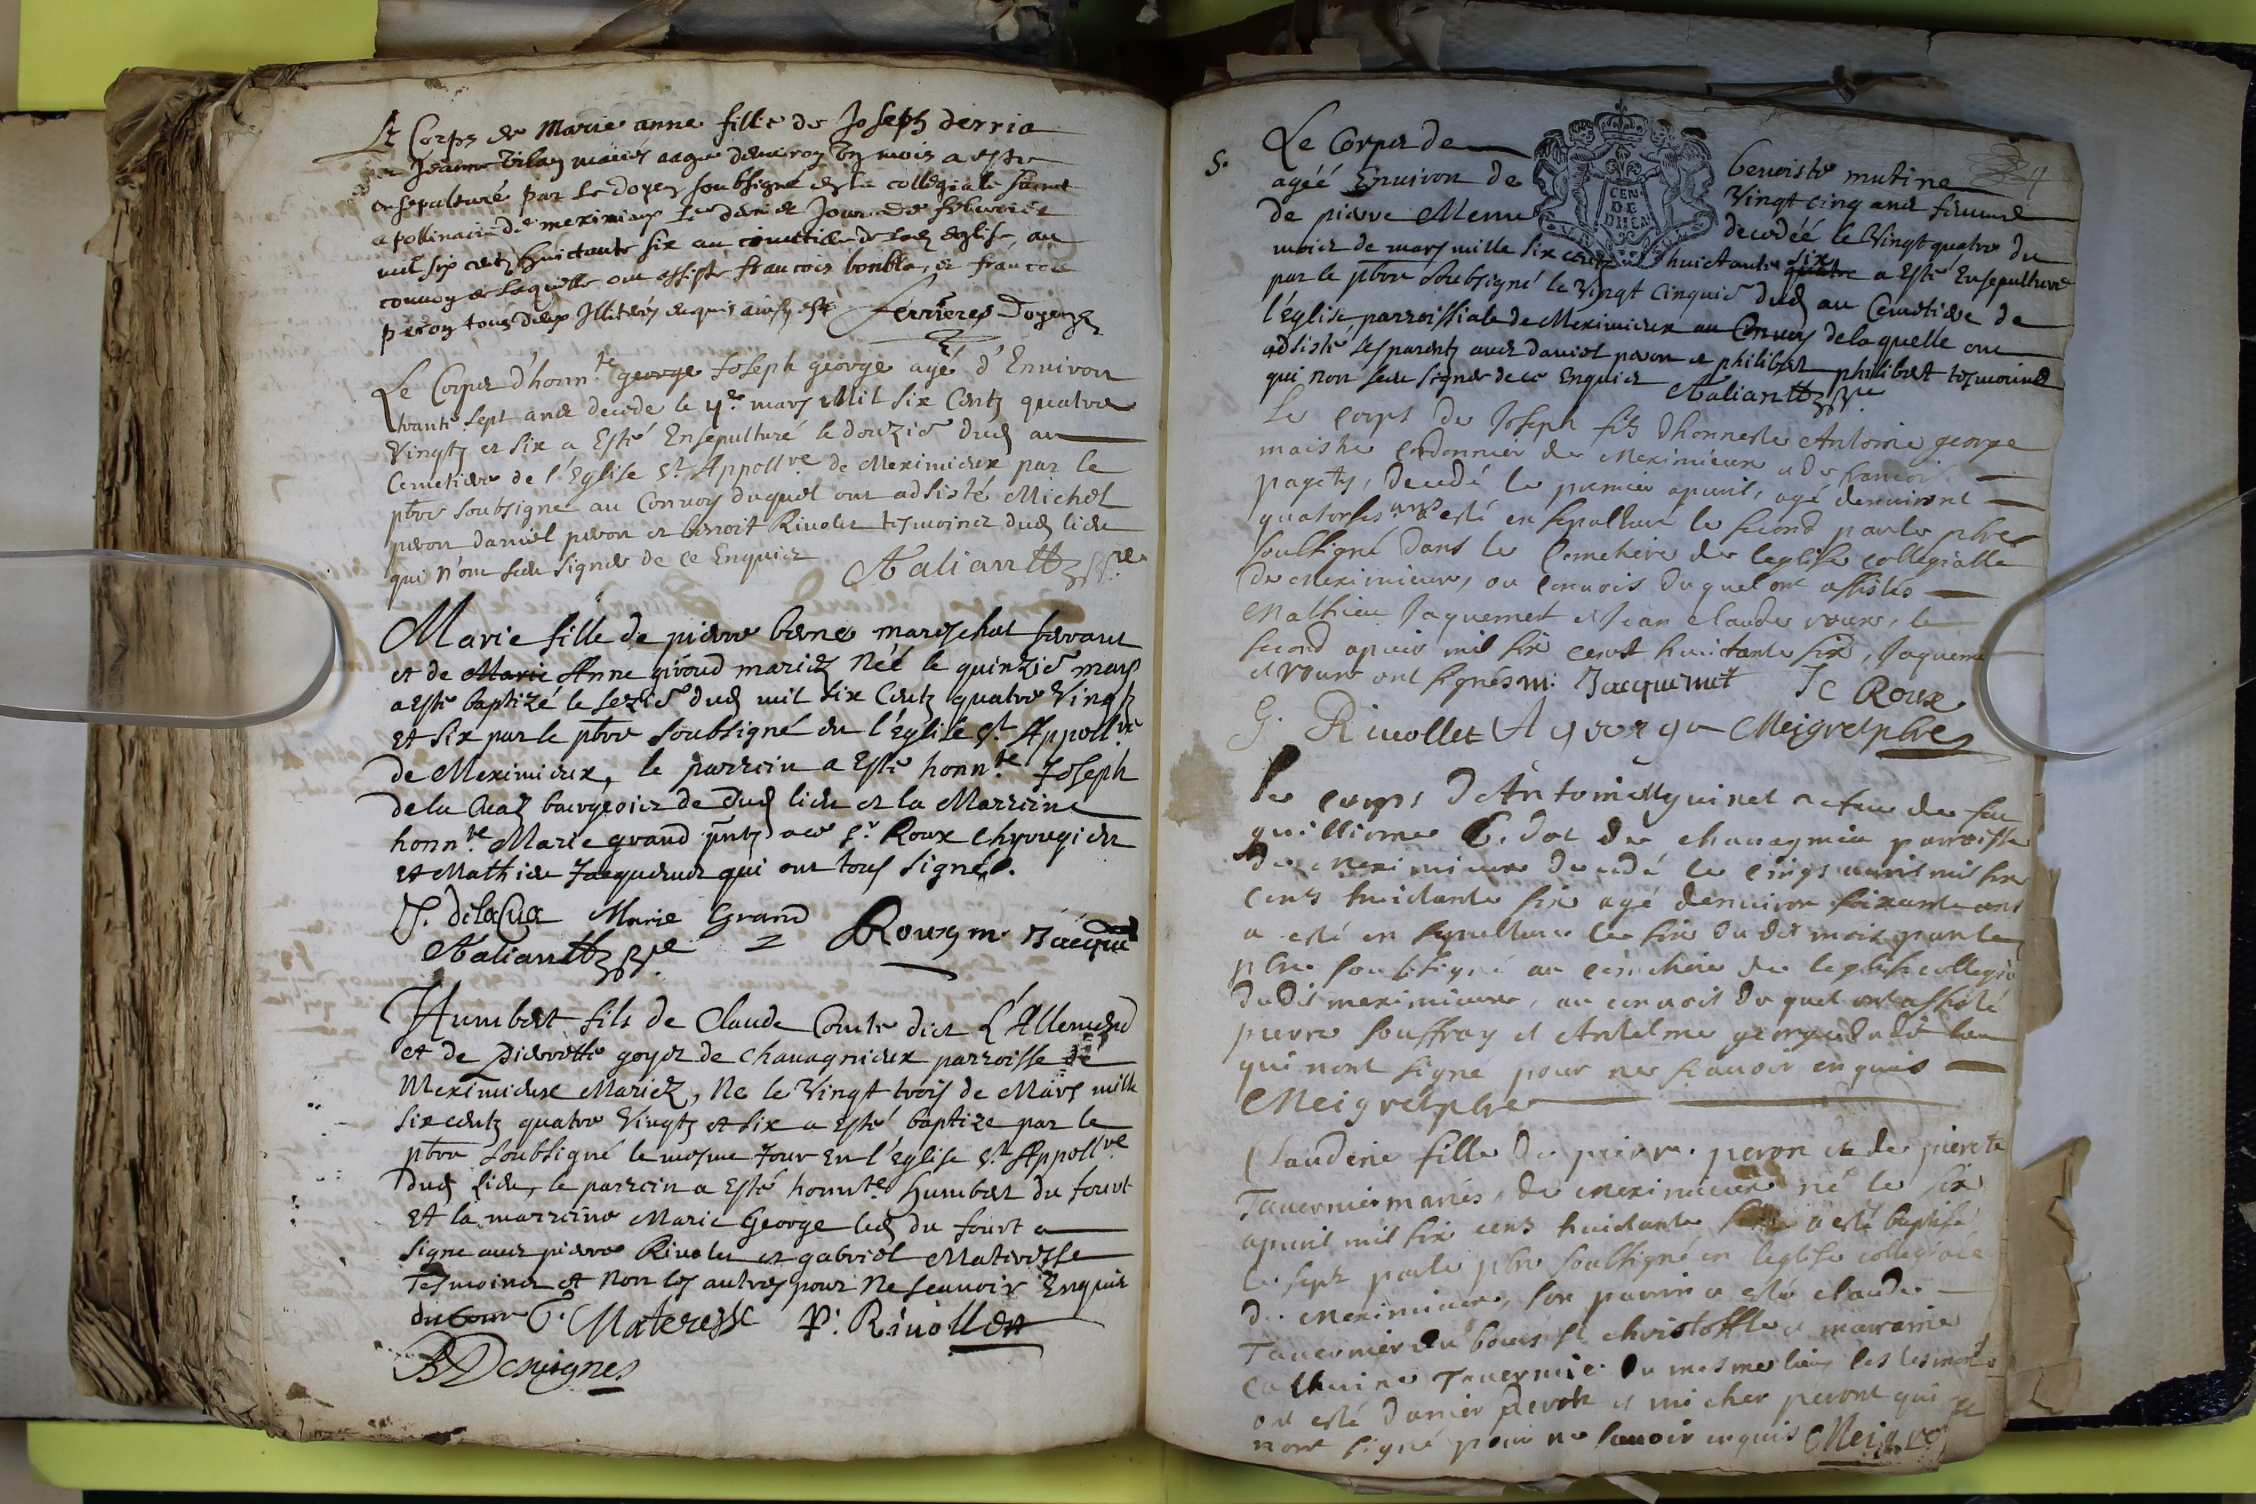 Le Corps de Marie anne fille de Joseph derria
et Jeanne mariés aagee denviron un mois a este
ensepulturé par le doyen soubsigné de la collegiale sainct
apollinaire de meximieux le dernier Jour de febvrier
mil six centz huictante six au cimetiere de lad eglise, au
convoy de laquelle ont assisté francois bonbla, et francois
peron tous deux Illiterés enquis ainsy est Ferrieres Doyen
Le Corps d'honnte george Joseph george agé d'Environ
trante sept ans decede le mars Mil six Centz quatre
Vingtz et six a Esté Ensepulturé le douzie dud au
Cemetiere de l'Eglise St Appollre de Meximieux par le
pbre soubsigné au Convoy duquel ont adsisté Michel
peron daniel peron et benoit Rivolet tesmoins dud lieu
qui n'ont sceu signer de ce Enquis Aalianttz pre
Marie fille de pierre berne mareschal ferrant
et de Marie Anne giroud mariez Née le quinzie mars
a esté baptizé le sezie dud mil six Centz quatre Vingtz
Et six par le pbre soubsigné en l'Eglise St Appollre
de Meximieux, le parrein a Esté honnte Joseph
de la Cua bourgeois de dud lieu et la Marreine
honnte Marie grand pntz ace Sr Roux Chyrurgien
Et Mathieu Jacquemet qui ont tous signé.
J. delaCua Marie Grand Roux m. Jacque
Aalianttz pre
Humbert fils de Claude Comte dict L'Allemend
et de Pierrette goyet de Chavagnieux parroisse de
Meximieux Mariez, Ne le Vingt trois de Mars mille
six centz quatre Vingtz et six a Esté baptize par le
pbre soubsigné le mesme Jour En l'Eglise St Appollre
Dud Lieu, le parrein a Esté honnte humbert du fourt
Et la marreine Marie George led du fourt a
signe avec pierre Rivolet et gabriel Materesse
Tesmoins et Non les autres pour Ne scavoir Enquis
G. Materesse P. Rivollet
B Desvignes
5.
Le Corps de Benoiste mutine
agéé Environ de Vingt cinq ans femme
de pierre Menu decedéé le Vingt quatre du
mois de mars mille six centz huictante six quatre a Esté Ensepulturé
par le pbre soubsigné le Vingt Cinquie dud au Cemetiere de
l'Eglise parroissiale de Meximieux au Convoy de laquelle ont
adsisté les parents avec daniel peron et philibert philibert tesmoins
qui non sceu signer de ce Enquis Aalianttz pre
Le corps de Joseph filz dhonneste Antoine george
maistre cordonnier de Meximieux et de francoise
pagety, decedé le premier apvril, agé denviront
quatorses ans a esté en sepulturé le second par le pbre
soubsigné dans le Cemetiere de leglise collegialle
de Meximieux, au convois duquel ont assistés
Mathieu Jaquemet et Jean claude roux, le
second apvris mil six cens huictante six, Jaquemet
et roux ont signés m. Jacquemet JC Roux
G. Rivollet A george Meigret pbre
Le corps d'Antoine Myvinet de feu
guilliome de chavagnieu parroisse
de Meximieux decedé le cinqs avril mil six
cens huictante six agé denviron soixante ans
a esté en sepulture le six dudit mois par le
pbre soubsigné au cemetiere de leglise collegia
dudit meximieux, au convois duquel ont assisté
pierre souffray et Antelme george dudit lieu
qui nont signé pour ne scavoir enquis
Meigret pbre
Claudine fille de pierre peron et de pierete
Tavernier mariés, de meximieux né le six
apvril mil six cens huictante six a esté baptisé
le sept par le pbre soubsigné en leglise collegiale
de meximieux, son parrin a esté claude
Tavernier du bourg St christoffle et marraine
Catherine Tavernie du mesme lieu, les tesmoins
ont esté danier peron et micher peront qui
nont signé pour ne scavoir enquis Meigret